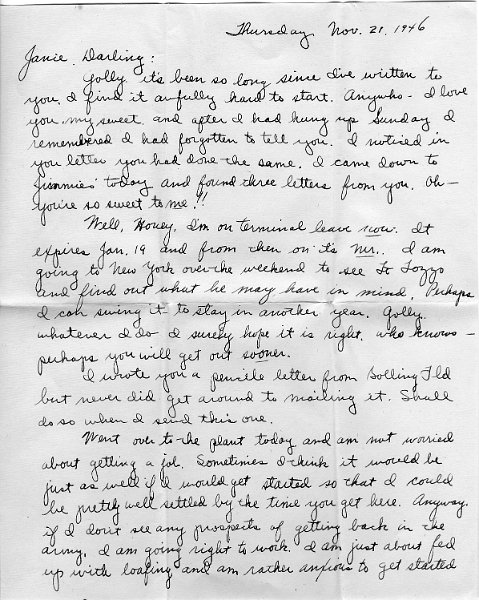 Thursday Nov. 21, 1946
Janie Darling:
Golly it's been so long since I've written to
you. I find it awfully hard to start. Anywho - I love
you my sweet and after I had hung up Sunday I
remembered I had forgotten to tell you. I noticed in
you letter you had done the same. I came down to
Jimmies' today and found three letters from you. Oh -
you're so sweet to me!!
Well, Honey, I'm on terminal leave now. It
expires Jan. 19 and from then on it's Mr.. I am
going to New York over the weekend to see Lt
and find out what he may have in mind. Perhaps
I can swing it to stay in another year. Golly.
whatever I do I surely hope it is right. who knows -
perhaps you will get out sooner.
I wrote you a pencile letter from Bolling Fld
but never did get around to mailing it. Shall
do so when I send this one.
Went over to the plant today and am not worried
about getting a job. Sometimes I think it would be
just as well if I would get started so that I could
be pretty well settled by the time you get here. Anyway.
if I don't see any prospects of getting back in the
army, I am going right to work. I am just about fed
up with loafing and am rather anxious to get started